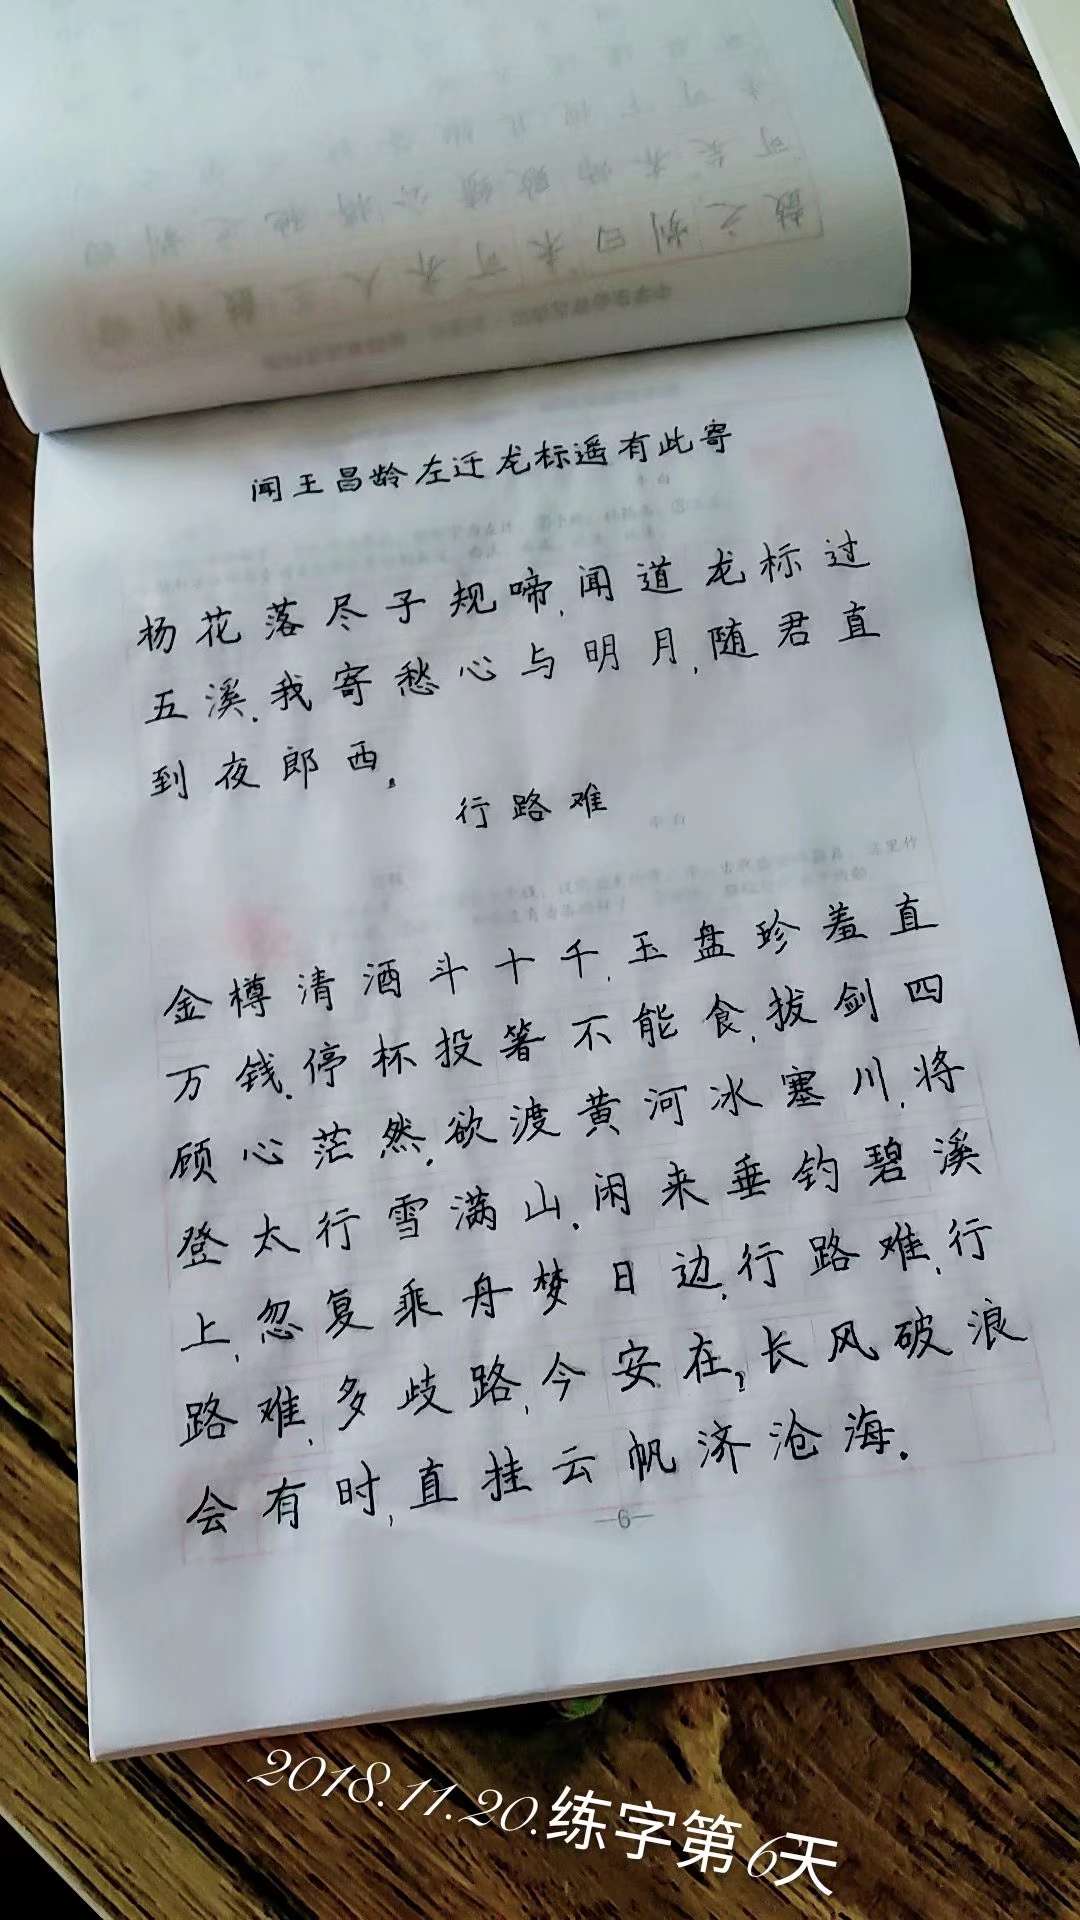 闻王昌龄左迁龙标遥有此寄
杨花落尽子规啼,闻道龙标过
五溪.我寄愁心与明月,随君直
到夜郎西。
行路难
金樽清酒斗十千,玉盘珍羞直
万钱.停杯投箸不能食,拔剑四
顾心茫然.欲渡黄河冰塞川,将
登太行雪满山.闲来垂钓碧溪
上,忽复乘舟梦日边.行路难,行
路难,多歧路,今安在?长风破浪
会有时,直挂云帆济沧海.
—6—
2018.11.20.练字第6天